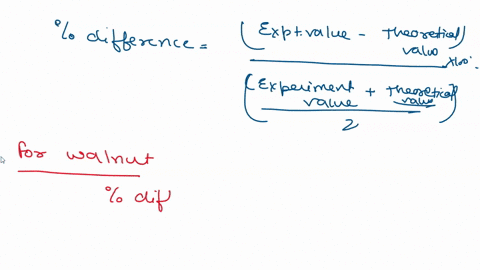 % difference = (Expt.value - Theoretical value) x100.
(Experiment value + Theoretical value)
2
for walnut
% dif